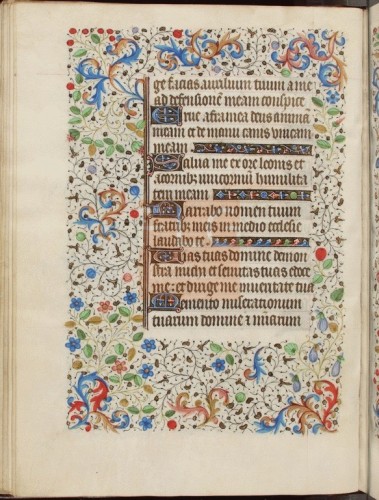 ge facias auxilium tuum a me
ad defensionē meam conspice
Erue a framea deus animā
meam et de manu canis unicam
meam
Salua me ex ore leonis et
a cornibꝫ unicornium humilita
tem meam
Narrabo nomen tuum
fratribꝫ meis in medio ecclesie
laudabo te
Uias tuas domine demon
stra michi et semitas tuas edoce
me: et dirige me in ueritate tua
Remento miserationum
tuarum domine et mīarum